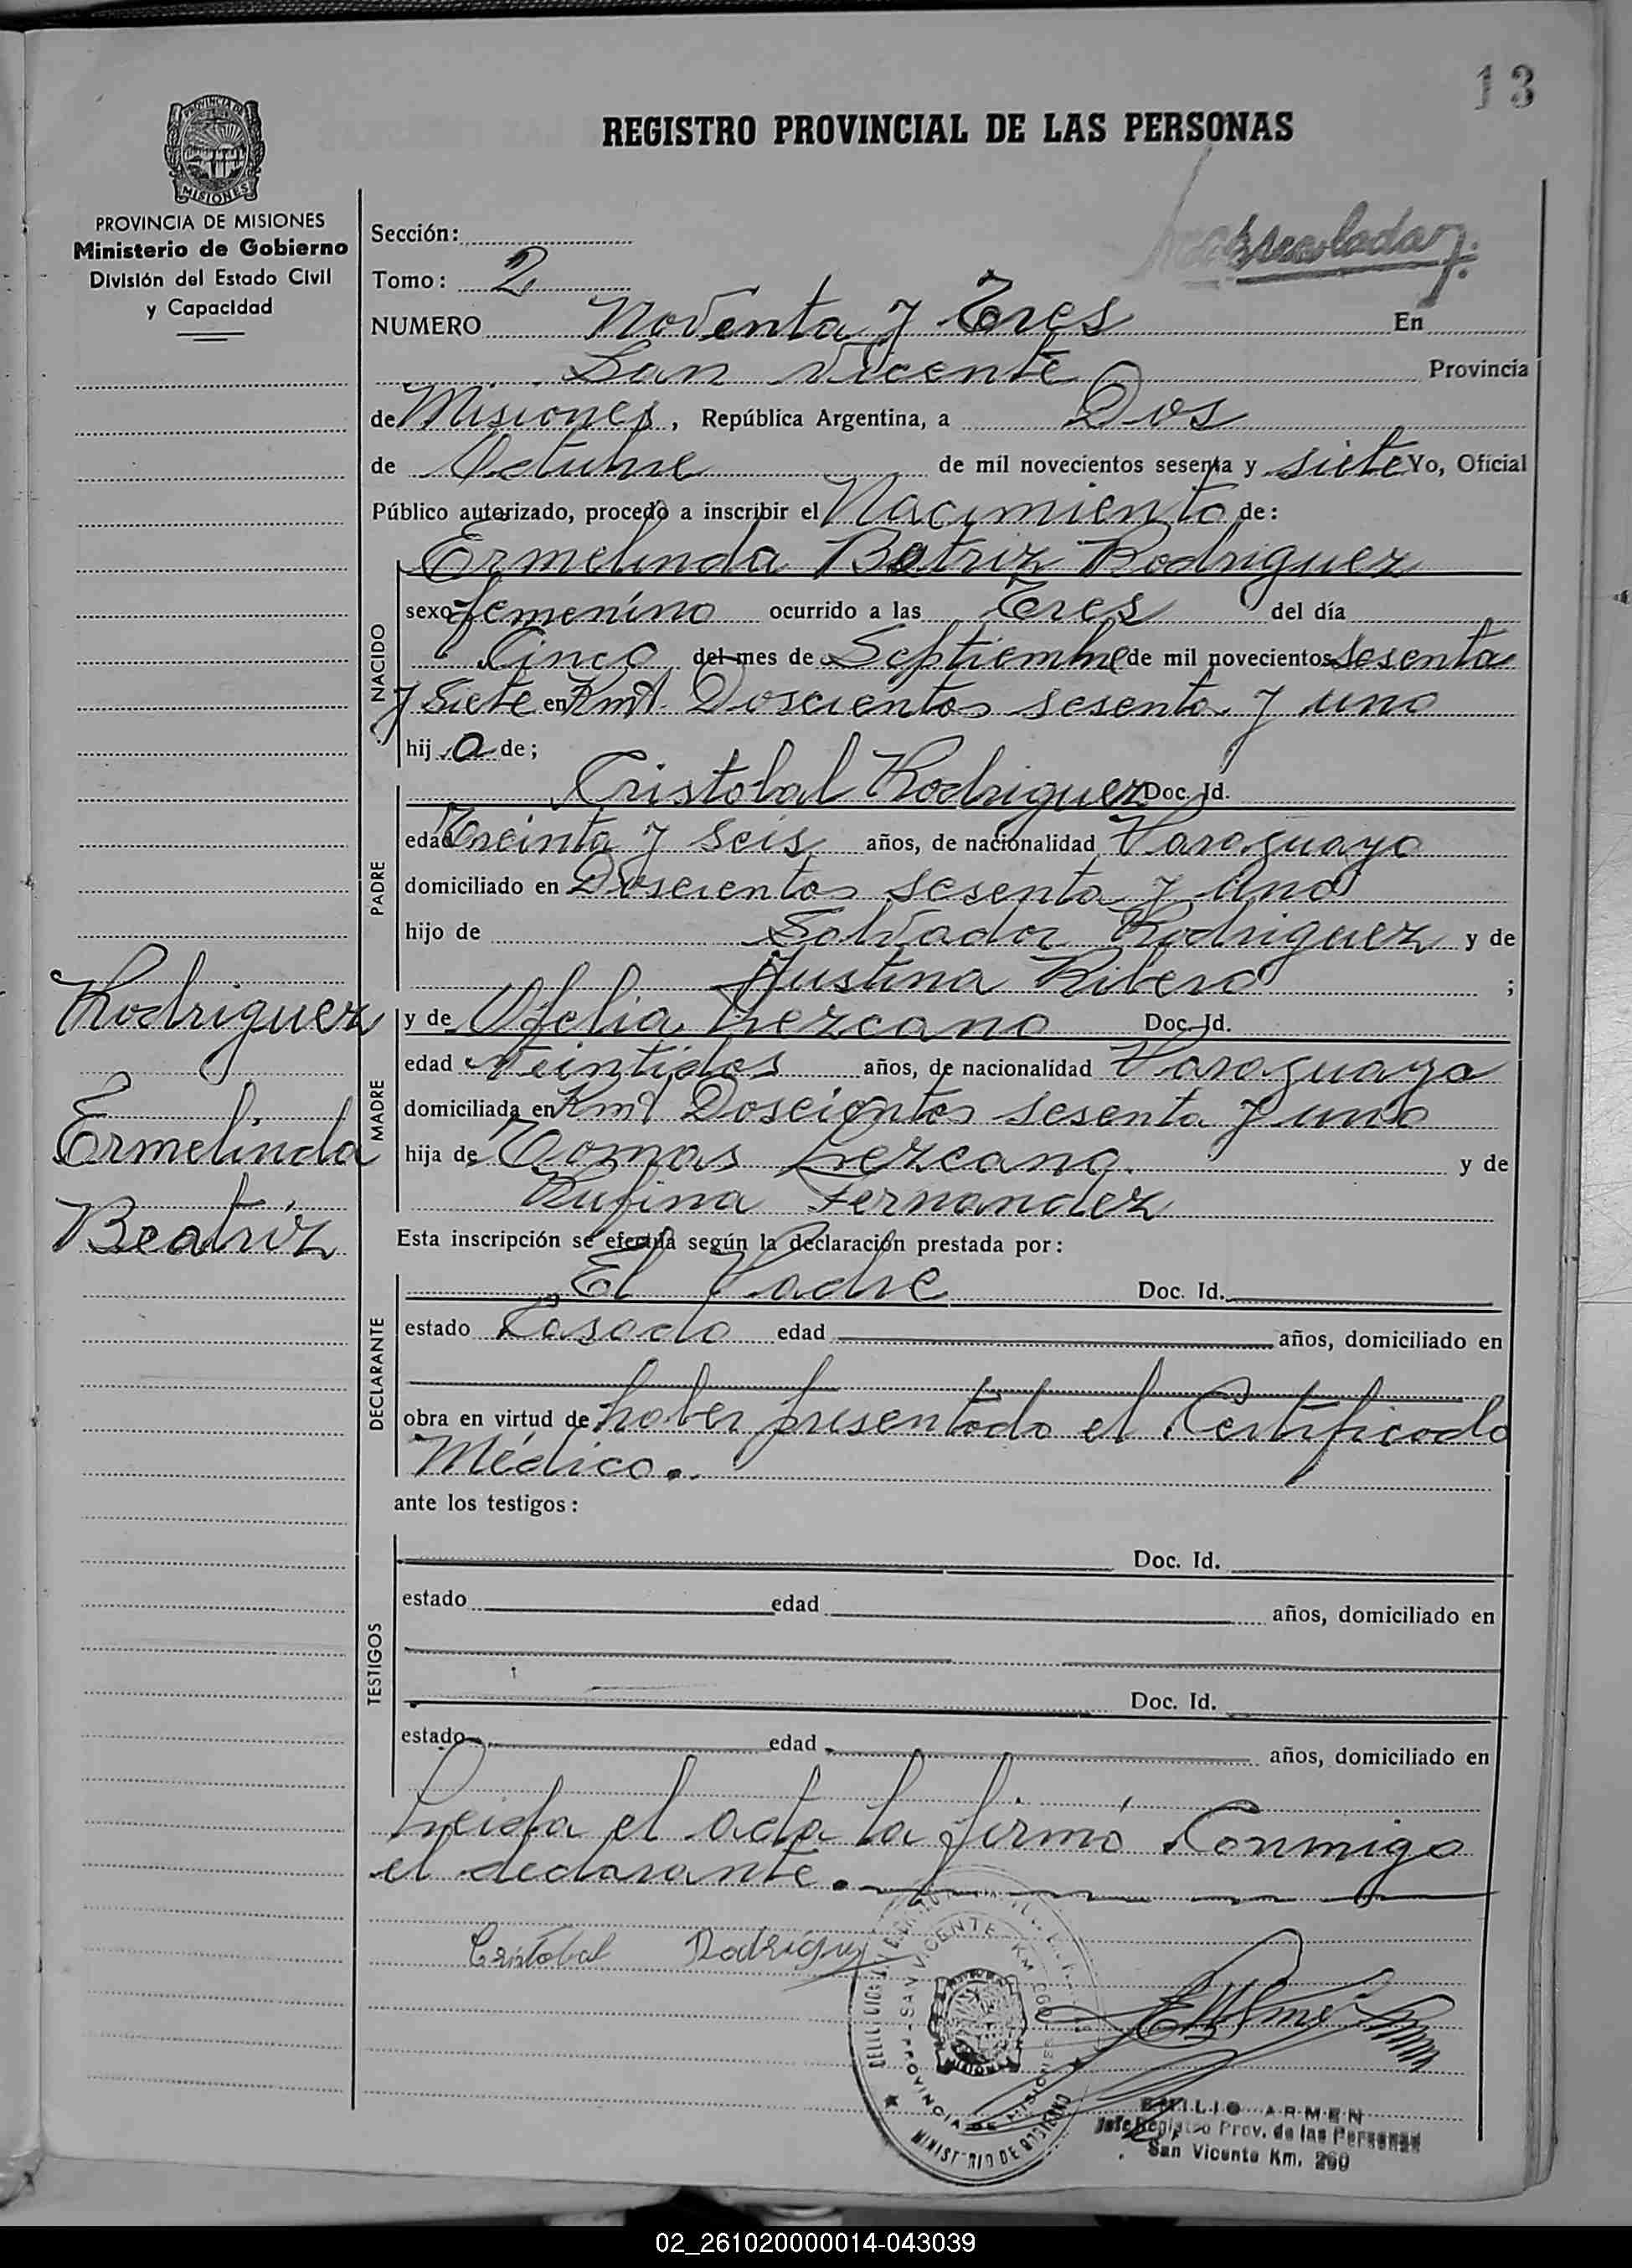 13
REGISTRO PROVINCIAL DE LAS PERSONAS
PROVINCIA DE MISIONES
Ministerio de Gobierno
División del Estado Civil
y Capacidad
Sección:
Tomo: 2
NUMERO Noventa y Tres En
San Vicente Provincia
de Misiones, República Argentina, a Dos
de Octubre de mil novecientos sesenta y siete Yo, Oficial
Público autorizado, procedo a inscribir el Nacimiento de:
Ermelinda Beatriz Rodriguez
NACIDO
sexo femenino ocurrido a las Tres del día
Cinco del mes de Septiembre de mil novecientos sesenta
y siete en Kmt. Doscientos sesenta y uno
hij a de;
Cristobal Rodriguez Doc. Id.
PADRE
edad Treinta y seis años, de nacionalidad Paraguayo
domiciliado en Doscientos sesenta y uno
hijo de Salvador Rodriguez y de
Justina Ribero ;
Rodriguez
Ermelinda
Beatriz
y de Ofelia Lezcano Doc. Id.
MADRE
edad Veintidos años, de nacionalidad Paraguaya
domiciliada en Kmt Doscientos sesenta y uno
hija de Tomas Lezcano y de
Rufina Fernandez
Esta inscripción se efectúa según la declaración prestada por:
El Padre Doc. Id.
DECLARANTE
estado Casado edad años, domiciliado en
obra en virtud de haber presentado el Certificado
Médico.
ante los testigos:
Doc. Id.
TESTIGOS
estado edad años, domiciliado en
Doc. Id.
estado edad años, domiciliado en
Leida el acta la firmó Conmigo
el declarante.
Cristobal Rodriguez
SAN VICENTE - KM. 260
PROVINCIA DE MISIONES
MINISTERIO DE GOBIERNO
EMILIO ARMEN
Jefe Registro Prov. de las Personas
San Vicente Km. 260
02_261020000014-043039